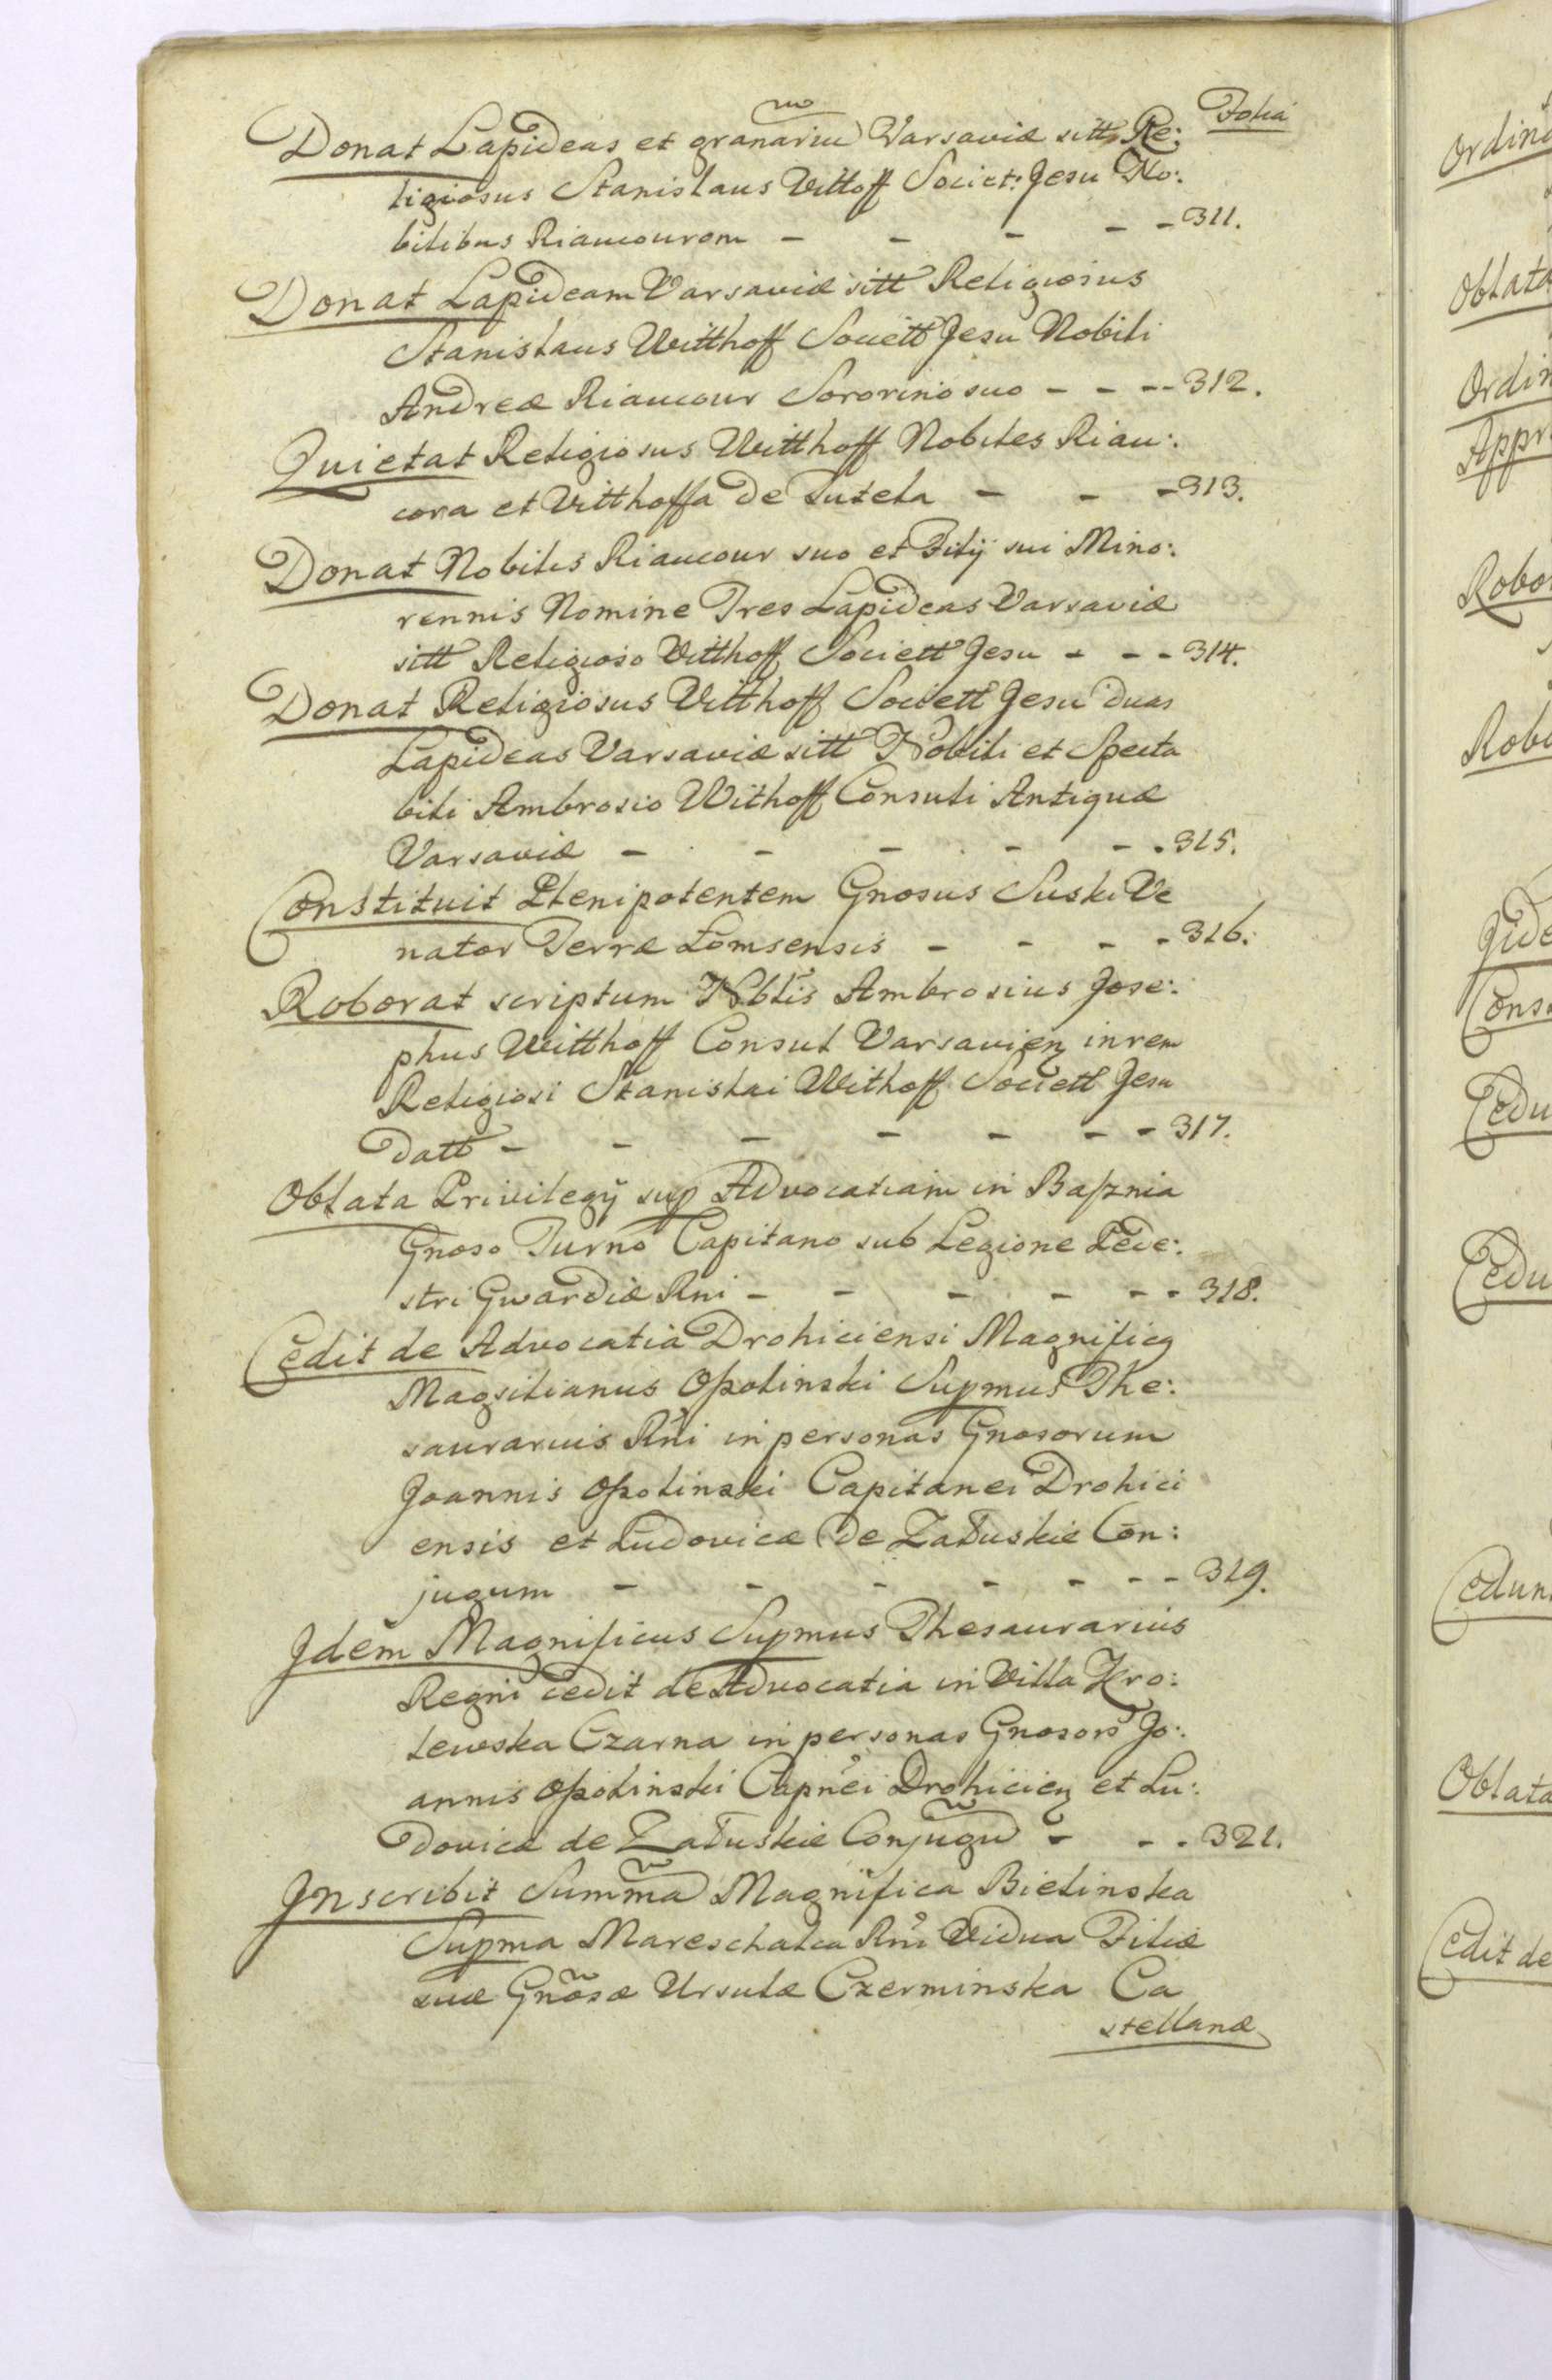 Folia
Donat Lapideas et granariu Varsaviæ sitt Re:
ligiosus Stanislaus Vittoff Societ: Jesu No:
bilibus Riaucourom - - - - - 311.
Donat Lapideam Varsaviæ sitt Religiosus
Stanislaus Witthoff Societt Jesu Nobili
Andreæ Riaucour Sororino suo - - - - 312.
Quietat Religiosus Witthoff Nobiles Riau:
cora et Vitthoffa de Tutela - - - 313.
Donat Nobilis Riaucour suo et Filÿ sui Mino:
rennis Nomine Tres Lapideas Varsaviæ
sitt Religioso Vitthoff Societt Jesu - - - 314.
Donat Religiosus Vitthoff Societt Jesu duas
Lapideas Varsaviæ sitt Nobili et Specta
bili Ambrosio Withoff Consuli Antiquæ
Varsaviæ - - - - - . 315.
Constituit Plenipotentem Gnosus Suski Ve
nator Terræ Łomsensis - - - - 316.
Roborat scriptum Nblis Ambrosius Jose:
phus Witthoff Consul Varsavien in rem
Religiosi Stanislai Withoff Societt Jesu
Datt - - - - - - - 317.
Oblata Privilegÿ sup Advocatiam in Basznia
Gnoso Turno Capitano sub Legione Pede:
stri Gwardiæ Rni - - - - - - 318.
Cedit de Advocatia Drohiciensi Magnificq
Magsilianus Ossolinski Supmus The:
saurarius Rni in personas Gnosorum
Joannis Ossolinski Capitanei Drohici
ensis et Ludovicæ de Załuskie Con:
jugum - - - - - - - 319.
Jdem Magnificus Supmus Thesaurarius
Regni cedit de Advocatia in Villa Kro:
lewska Czarna in personas Gnosors Jo:
annis Ossolinski Capnei Drohicien et Lu:
dovicæ de Załuskie Conjugu - - - 321.
Jnscribit Summa Magnifica Bielinska
Supma Mareschalca Rni Vidua Filiæ
suæ Gnosæ Ursulæ Czerminska Ca
stellanæ
Ordin
Oblata
Ordin
Appr
Robo
Robo
Jide
Cons
Cedu
Cedu
Cedun
Oblata
Cedit de